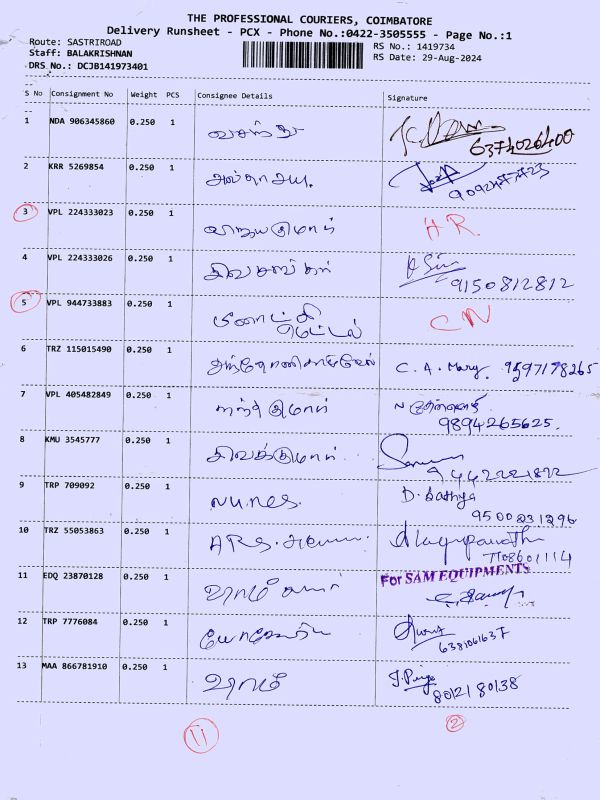 THE PROFESSIONAL COURIERS, COIMBATORE
Delivery Runsheet - PCX - Phone No.:0422-3505555 - Page No.:1
Route: SASTRIROAD RS No.: 1419734
Staff: BALAKRISHNAN RS Date: 29-Aug-2024
DRS No.: DCJB141973401
S No Consignment No Weight PCS Consignee Details Signature
1 NDA 906345860 0.250 1 வசந்த்
6374026400
2 KRR 5269854 0.250 1
3 VPL 224333023 0.250 1 விஜயகுமார் HR.
4 VPL 224333026 0.250 1 சிவசங்கர்
9150812812
5 VPL 944733883 0.250 1 மீனாட்சி CN
மெட்டல்
6 TRZ 115015490 0.250 1 C. A. Mary. 9597178265
7 VPL 405482849 0.250 1 நந்தகுமார்
9894265625.
8 KMU 3545777 0.250 1 சிவக்குமார்
9442221822
9 TRP 709092 0.250 1 D. Sathya
9500231296
10 TRZ 55053863 0.250 1 ARS. Alagupavathi
7708601114
11 EDQ 23870128 0.250 1 ராம் For SAM EQUIPMENTS
12 TRP 7776084 0.250 1
6381061637
13 MAA 866781910 0.250 1 ராம் J. Priya
80121 80138
11 2